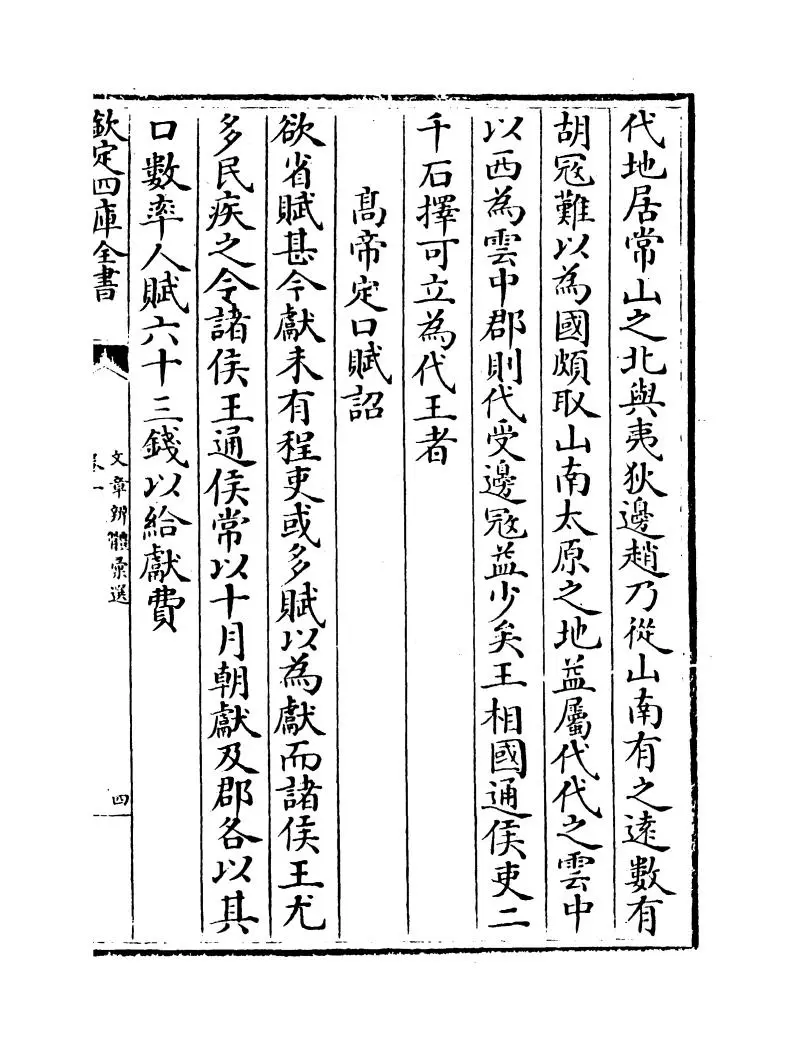 代地居常山之北與夷狄邊趙乃從山南有之逺數有
胡冦難以為國頗取山南太原之地益屬代代之雲中
以西為雲中郡則代受邊冦益少矣王相國通侯吏二
千石擇可立為代王者
髙帝定口賦詔
欲省賦甚今獻未有程吏或多賦以為獻而諸侯王尤
多民疾之令諸侯王通侯常以十月朝獻及郡各以其
口數率人賦六十三錢以給獻費
欽定四庫全書
文章辨體彚選
卷一
四